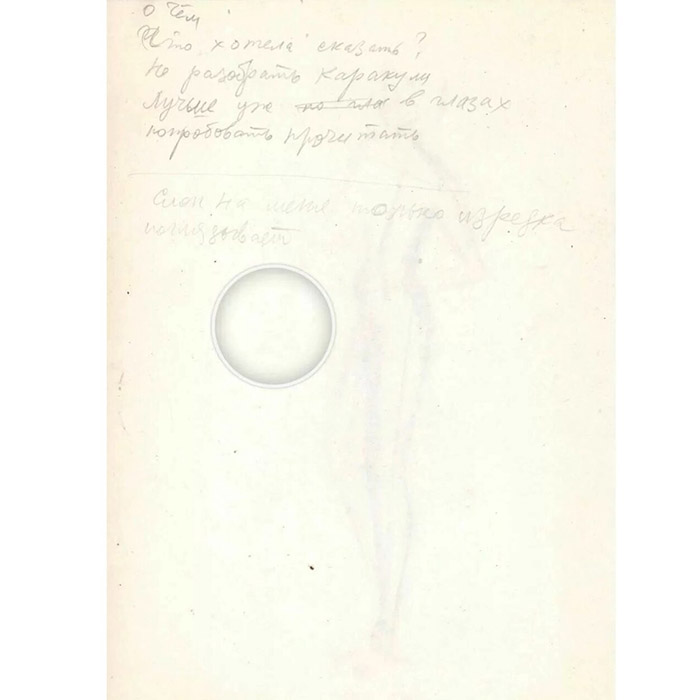 о чём
Что хотела сказать?
Не разобрать каракули
Лучше уже в глазах
попробовать прочитать
Слон на меня только изредка
поглядывает